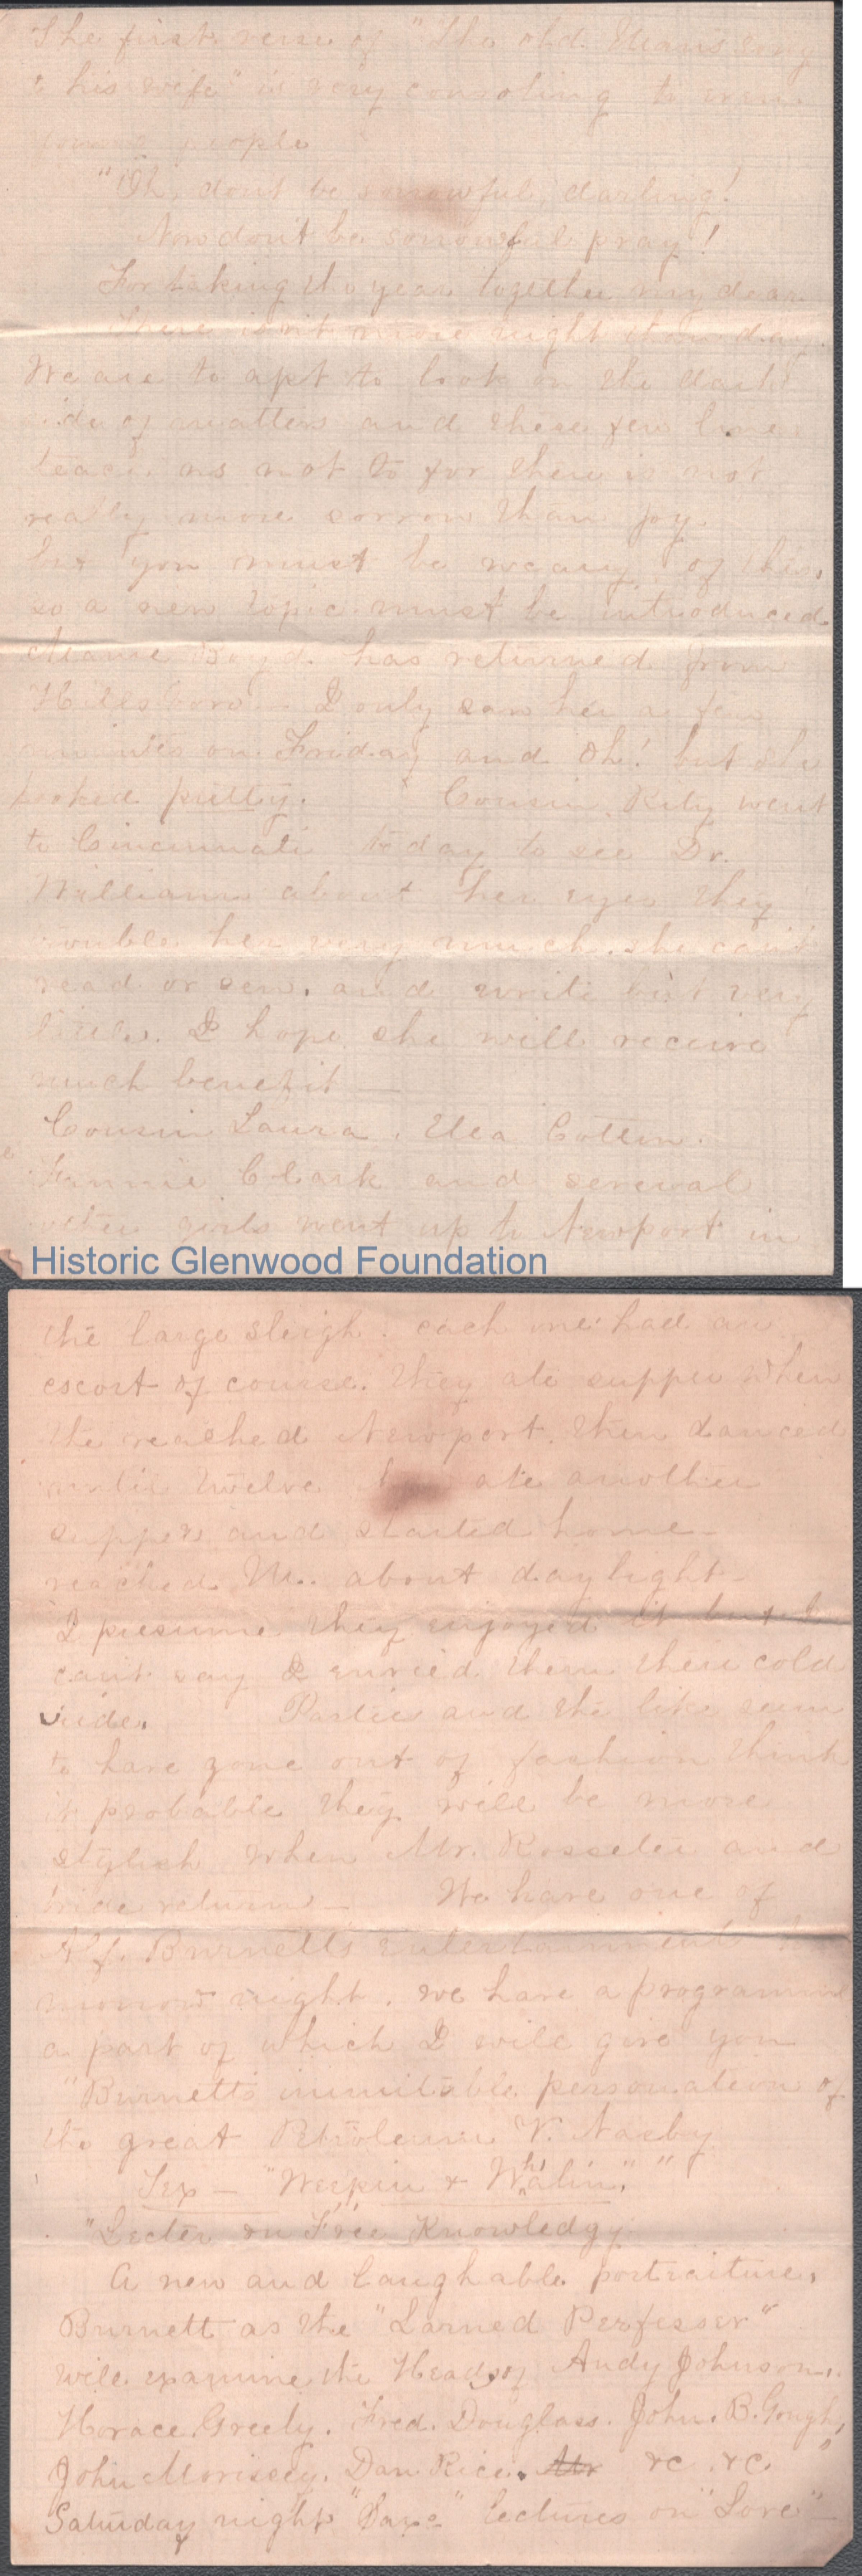 The first verse of "The old Man's song
to his wife" is very consoling to even
young people
"Oh, dont be sorrowful, darling!
Now don't be sorrowful pray!
For taking the year together my dear
There isn't more night than day.
We are to apt to look on the dark
side of matters and these few lines
teach us not to for there is not
really more sorrow than joy.
but you must be weary of this,
so a new topic must be introduced.
Mamie Boyd has returned from
Hillsboro. I only saw her a few
minutes on Friday and Oh! but she
looked pretty. Cousin Kity went
to Cincinnati to day to see Dr.
Williams about her eyes they
trouble her very much. she can't
read or sew. and write but very
little. I hope she will receive
much benefit —
Cousin Laura. Ella Cotten.
Fannie Clark and several
other girls went up to Newport in
Historic Glenwood Foundation
the large sleigh. each one had an
escort of course. they ate supper when
the reached Newport. then danced
until twelve ate another
supper and started home —
reached M. about daylight —
I presume they enjoyed it but I
cant say I envied them their cold
ride. Parties and the like seem
to have gone out of fashion think
it probable they will be more
stylish when Mr. Rosseter and
bride return — We have one of
Alf. Burnett's entertainments to
morrow night. we have a programme
a part of which I will give you
"Burnett's inimitable personation of
the great Petroleum V. Nasby
"Weepin & Whalin." "
"Lecter on Free Knowledgy.
A new and laughable portraiture,
Burnett as the "Larned Perfesser"
will examine the Heads of Andy Johnson,
Horace Greely. Fred. Douglass. John. B. Gough,
John Morissey. Dan Rice. Mr &c &c. "
Saturday night "Saxe" lectures on "Love" —